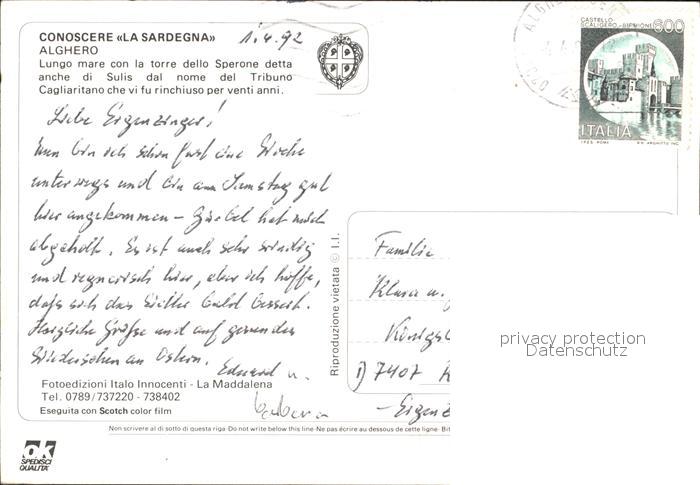 CONOSCERE «LA SARDEGNA»
ALGHERO
Lungo mare con la torre dello Sperone detta
anche di Sulis dal nome del Tribuno
Cagliaritano che vi fu rinchiuso per venti anni.
1.4.92
CASTELLO
SCALIGERO-SIRMIONE 600
ITALIA
I.P.Z.S. ROMA
Liebe Eizenzinger!
Nun bin ich schon fast eine Woche
unterwegs und bin am Samstag gut
hier angekommen – hat mich
abgeholt. Es ist auch sehr windig
und regnerisch hier, aber ich hoffe,
daß sich das Wetter bald bessert.
Herzliche Grüße und auf gesundes
Wiedersehen an Ostern. Eduard u.
barbara
Familie
Klara u.
Königs
7407
Reproduzione vietata © I.I.
Fotoedizioni Italo Innocenti - La Maddalena
Tel. 0789/737220 - 738402
Eseguita con Scotch color film
Non scrivere al di sotto di questa riga-Do not write below this line-Ne pas écrire au dessous de cette ligne-Bit
ok
SPEDISCI
QUALITA'
privacy protection
Datenschutz